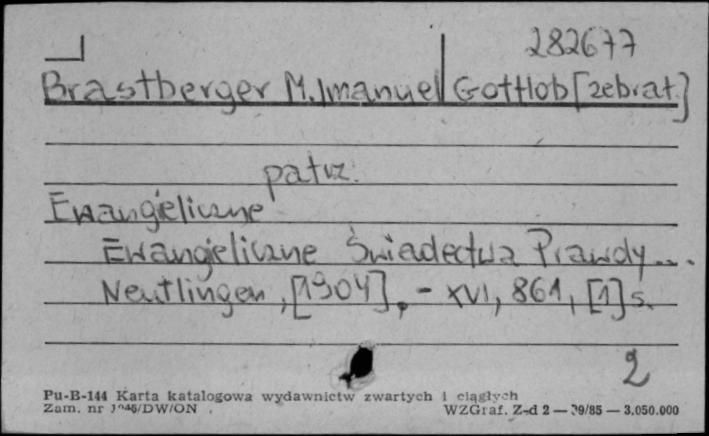 282677
Brastberger M. Imanuel Gottlob [zebrat.]
patrz:
Ewangieliczne
Ewangieliczne Świadectwa Prawdy...
Neutlingen, [1904], - XVI, 861, [1] s.
2
Pu-B-144 Karta katalogowa wydawnictw zwartych i ciągłych
Zam. nr /DW/ON WZGraf. Z-d 2 — 39/85 — 3.050.000